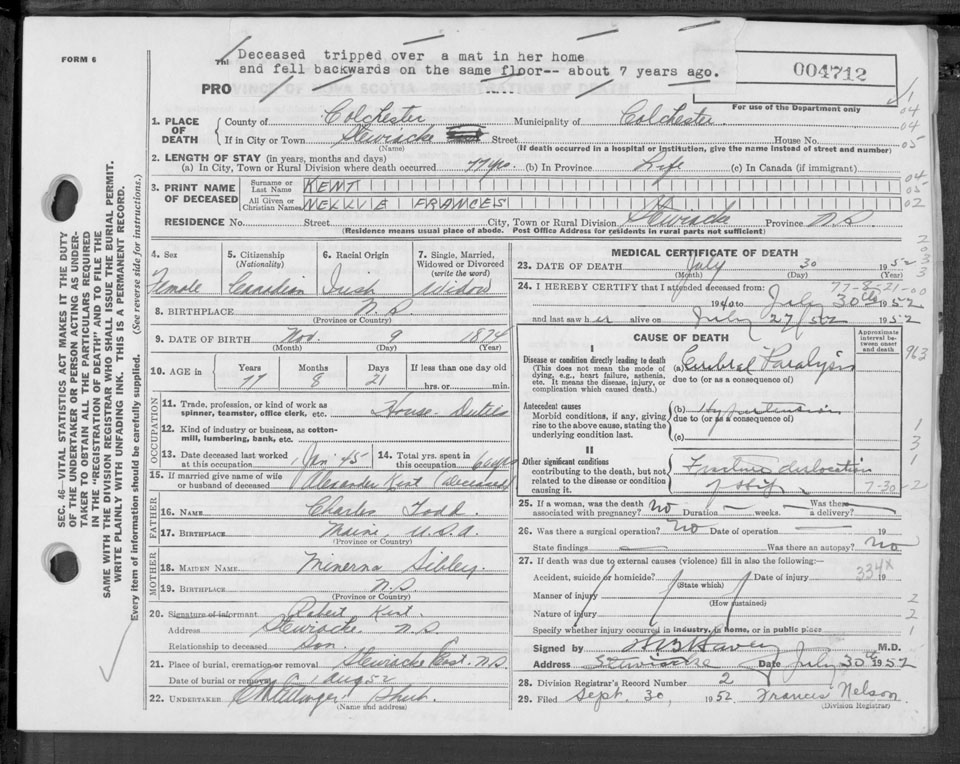 FORM 6
Deceased tripped over a mat in her home
and fell backwards on the same floor-- about 7 years ago.
004712
For use of the Department only
PRO
1. PLACE OF DEATH
County of Colchester Municipality of Colchester
If in City or Town Stewiacke Street House No.
(Name) (If death occurred in a hospital or institution, give the name instead of street and number)
2. LENGTH OF STAY (in years, months and days)
(a) In City, Town or Rural Division where death occurred 77 yrs. (b) In Province Life (c) In Canada (if immigrant)
3. PRINT NAME OF DECEASED
Surname or Last Name KENT
All Given or Christian Names NELLIE FRANCES
RESIDENCE No. Street City, Town or Rural Division Stewiacke Province N.S.
(Residence means usual place of abode. Post Office Address for residents in rural parts not sufficient)
4. Sex Female
5. Citizenship (Nationality) Canadian
6. Racial Origin Irish
7. Single, Married, Widowed or Divorced (write the word) Widow
8. BIRTHPLACE N.S.
(Province or Country)
9. DATE OF BIRTH Nov. 9 1874
(Month) (Day) (Year)
10. AGE in Years 77 Months 8 Days 21 If less than one day old
hrs. or min.
OCCUPATION
11. Trade, profession, or kind of work as spinner, teamster, office clerk, etc. House-Duties
12. Kind of industry or business, as cotton-mill, lumbering, bank, etc.
13. Date deceased last worked at this occupation Jan. 45 14. Total yrs. spent in this occupation 60 yrs
15. If married give name of wife or husband of deceased Alexander Kent (deceased)
FATHER
16. NAME Charles Todd
17. BIRTHPLACE Maine, U.S.A.
(Province or Country)
MOTHER
18. MAIDEN NAME Minerva Sibley
19. BIRTHPLACE N.S.
(Province or Country)
20. Signature of informant Robert Kent.
Address Stewiacke N.S.
Relationship to deceased Son.
21. Place of burial, cremation or removal Stewiacke East. N.S.
Date of burial or removal 1 Aug 52
22. UNDERTAKER
(Name and address)
MEDICAL CERTIFICATE OF DEATH
23. DATE OF DEATH July 30 1952
(Month) (Day) (Year)
77-8-21-00
24. I HEREBY CERTIFY that I attended deceased from:
1940 to July 30th 1952
and last saw her alive on July 27/52 1952
CAUSE OF DEATH
Approximate interval between onset and death
I
Disease or condition directly leading to death
(This does not mean the mode of dying, e.g., heart failure, asthenia, etc. It means the disease, injury, or complication which caused death.)
(a) Cerebral Paralysis
due to (or as a consequence of)
Antecedent causes
Morbid conditions, if any, giving rise to the above cause, stating the underlying condition last.
(b) Hypertension
due to (or as a consequence of)
(c)
II
Other significant conditions
contributing to the death, but not related to the disease or condition causing it.
Fracture dislocation
of Hip
7-30-2
25. If a woman, was the death associated with pregnancy? No Duration — weeks. Was there a delivery? —
26. Was there a surgical operation? No Date of operation 19
State findings — Was there an autopsy? No
27. If death was due to external causes (violence) fill in also the following:—
Accident, suicide or homicide? Date of injury 19
(State which)
334X
Manner of injury
(How sustained)
Nature of injury
Specify whether injury occurred in industry, in home, or in public place
Signed by M.D.
Address Stewiacke Date July 30th 1952
28. Division Registrar's Record Number 2
29. Filed Sept. 30, 1952 Francis Nelson
(Division Registrar)
SEC. 46—VITAL STATISTICS ACT MAKES IT THE DUTY
OF THE UNDERTAKER OR PERSON ACTING AS UNDER-
TAKER TO OBTAIN ALL THE PARTICULARS REQUIRED
IN THE "REGISTRATION OF DEATH" AND TO FILE THE
SAME WITH THE DIVISION REGISTRAR WHO SHALL ISSUE THE BURIAL PERMIT.
WRITE PLAINLY WITH UNFADING INK. THIS IS A PERMANENT RECORD.
Every item of information should be carefully supplied. (See reverse side for instructions.)
1
04
04
05
04
05
02
2
3
3
963
1
3
1
2
2
1